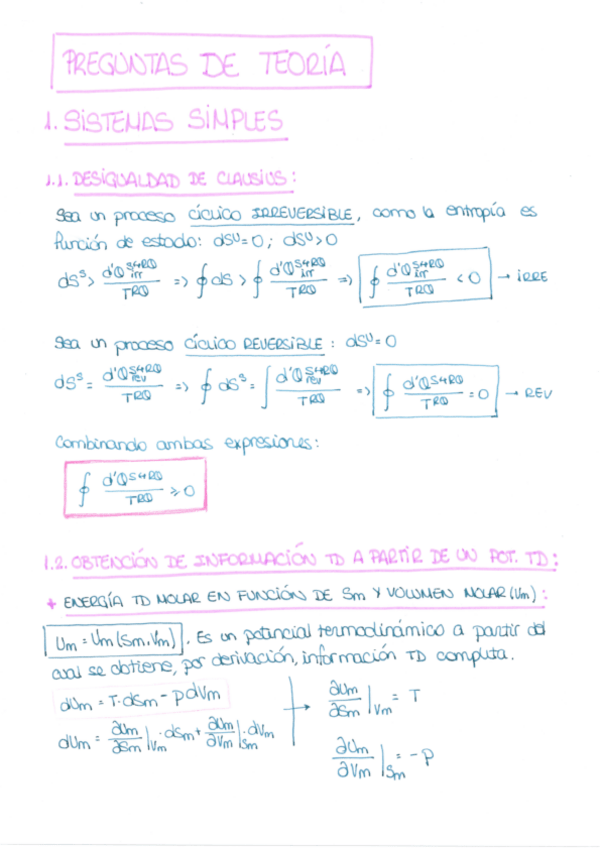 PREGUNTAS DE TEORÍA
1. SISTEMAS SIMPLES
1.1. DESIGUALDAD DE CLAUSIUS:
Sea un proceso cíclico IRREVERSIBLE, como la entropía es
función de estado: dSᵁ=0; dSᵁ>0
dSˢ > d'Q_irr^{S↔RQ} / TRQ => ∮dS > ∮ d'Q_irr^{S↔RQ} / TRQ => ∮ d'Q_irr^{S↔RQ} / TRQ < 0 → IRRE
Sea un proceso cíclico REVERSIBLE: dSᵁ=0
dSˢ = d'Q_rev^{S↔RQ} / TRQ => ∮ dSˢ = ∫ d'Q_rev^{S↔RQ} / TRQ => ∮ d'Q^{S↔RQ} / TRQ = 0 → REV
Combinando ambas expresiones:
∮ d'Q^{S↔RQ} / TRQ ≥ 0
1.2. OBTENCIÓN DE INFORMACIÓN TD A PARTIR DE UN POT. TD:
+ ENERGÍA TD MOLAR EN FUNCIÓN DE Sm Y VOLUMEN MOLAR (Vm):
Um = Um(Sm,Vm). Es un potencial termodinámico a partir del
cual se obtiene, por derivación, información TD completa.
dUm = T·dSm - pdVm
dUm = ∂Um/∂Sm|Vm · dSm + ∂Um/∂Vm|Sm · dVm
→ ∂Um/∂Sm|Vm = T
∂Um/∂Vm|Sm = -p